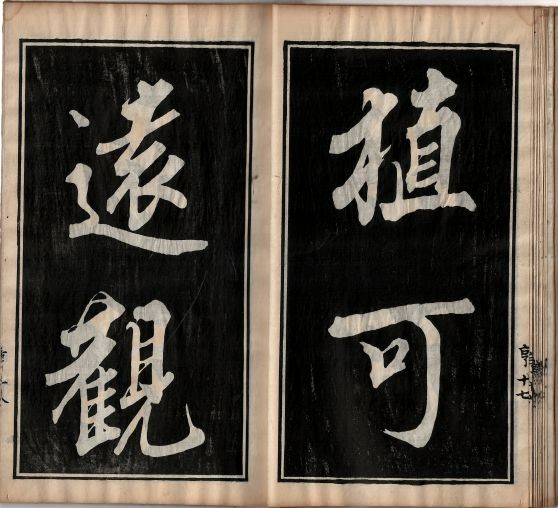 植可
遠觀
亨十七